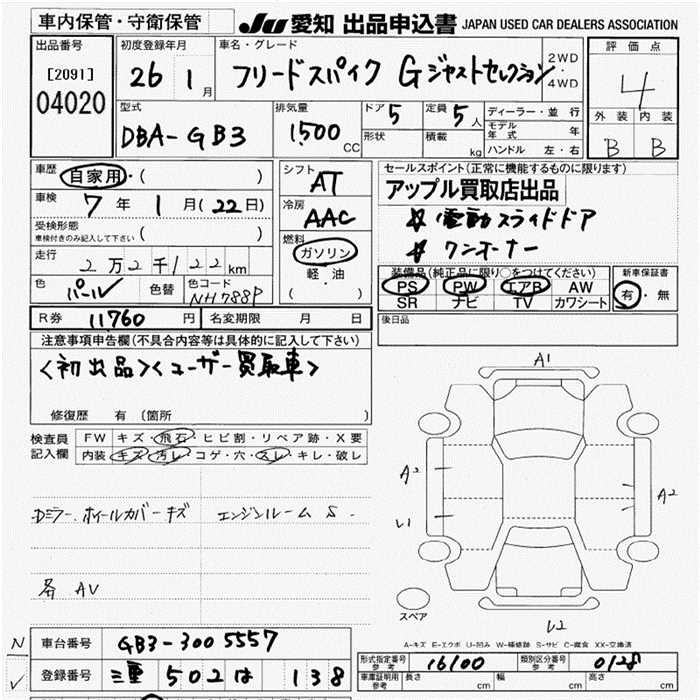 車内保管・守衛保管
JU 愛知 出品申込書 JAPAN USED CAR DEALERS ASSOCIATION
出品番号
[2091]
04020
初度登録年月
26 1月
車名・グレード
フリードスパイク Gジャストセレクション
2WD
・
4WD
評価点
4
外装 内装
B B
型式
DBA-GB3
排気量
1500 CC
ドア 5
形状
定員 5人
積載 kg
ディーラー・並行
モデル年式 年
ハンドル 左・右
車歴
自家用・( )
車検
7年 1月(22日)
受検形態
車検付きのみ記入して下さい ( )
走行
2万2千122km
色 パール 色替 色コード NH788P
シフト
AT
冷房
AAC
燃料
ガソリン
軽・油
( )
セールスポイント(正常に機能するものに限ります)
アップル買取店出品
☆ 電動スライドドア
☆ ワンオーナー
装備品(純正品に限り○をつけてください)
PS PW エアB AW
SR ナビ TV カワシート
新車保証書
有・無
R券 11760円 名変期限 月 日
後日品
注意事項申告欄(不具合内容等は具体的に記入して下さい)
<初出品><ユーザー買取車>
修復歴 有(箇所 )
検査員記入欄
FW キズ・飛石・ヒビ割・リペア跡・X要
内装 キズ・汚レ・コゲ・穴・スレ・キレ・破レ
Dミラー、ホイールカバーキズ エンジンルーム S.
各 AV
A1
A2
L1
A2
L2
スペア
A-キズ E-エクボ U-凹み W-補修跡 S-サビ C-腐食 XX-交換済
N 車台番号 GB3-3005557
✓ 登録番号 三重 502 は 138
形式指定番号 参考 16100 類別区分番号 参考 0128
車庫証明用 参考 長さ cm 幅 cm 高さ cm